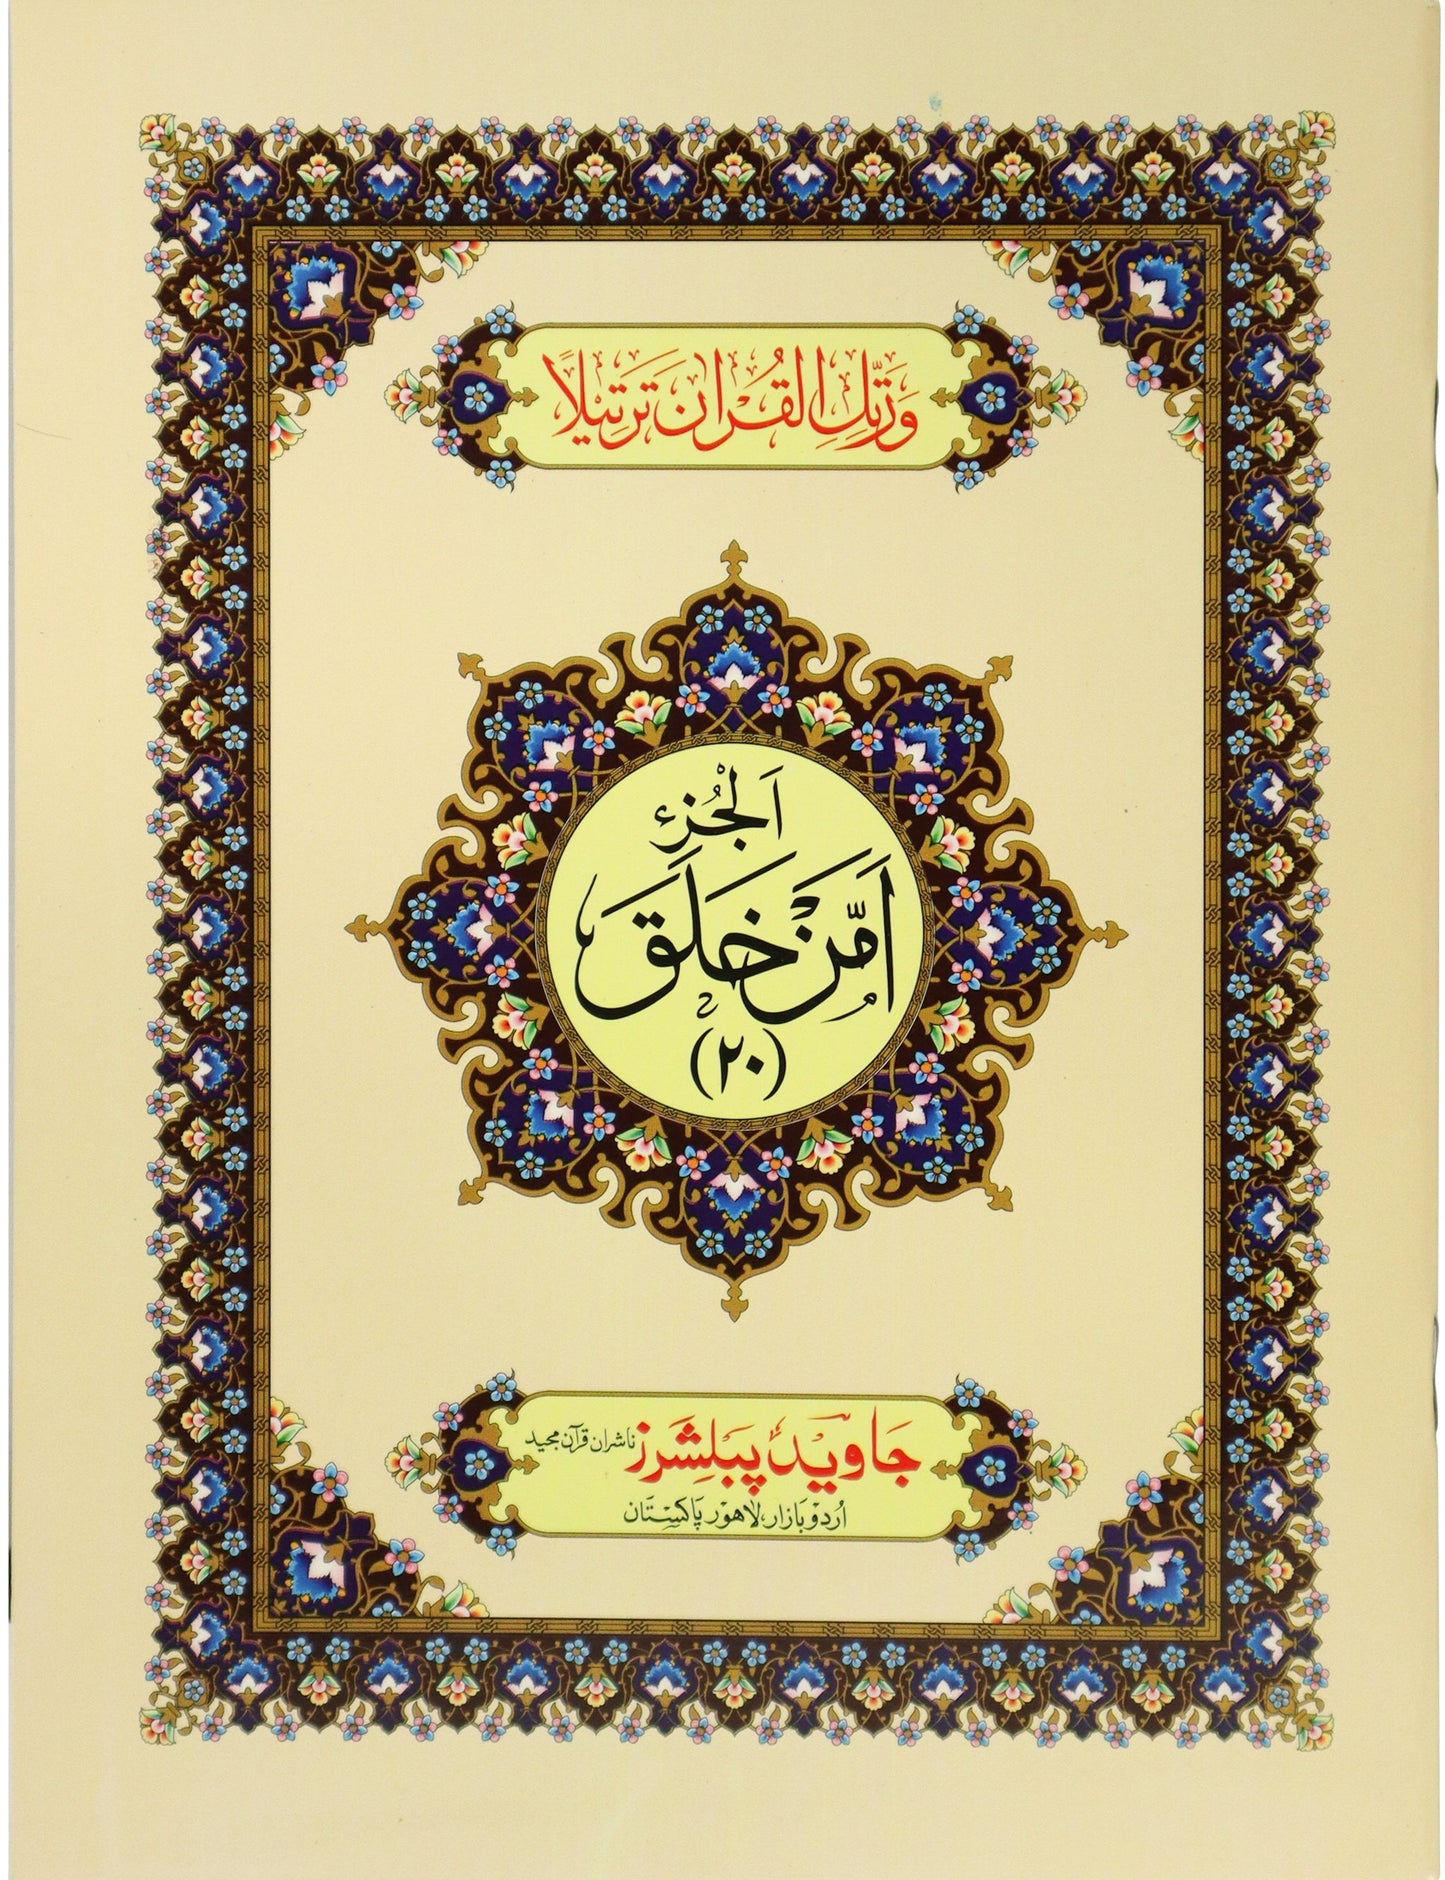 وَرَتِّلِ الْقُرْاٰنَ تَرْتِيْلًا
اَلْجُزْء
اَمَّنْ خَلَقَ
(۲۰)
جاوید پبلشرز ناشران قرآن مجید
اُردو بازار، لاهور پاکستان